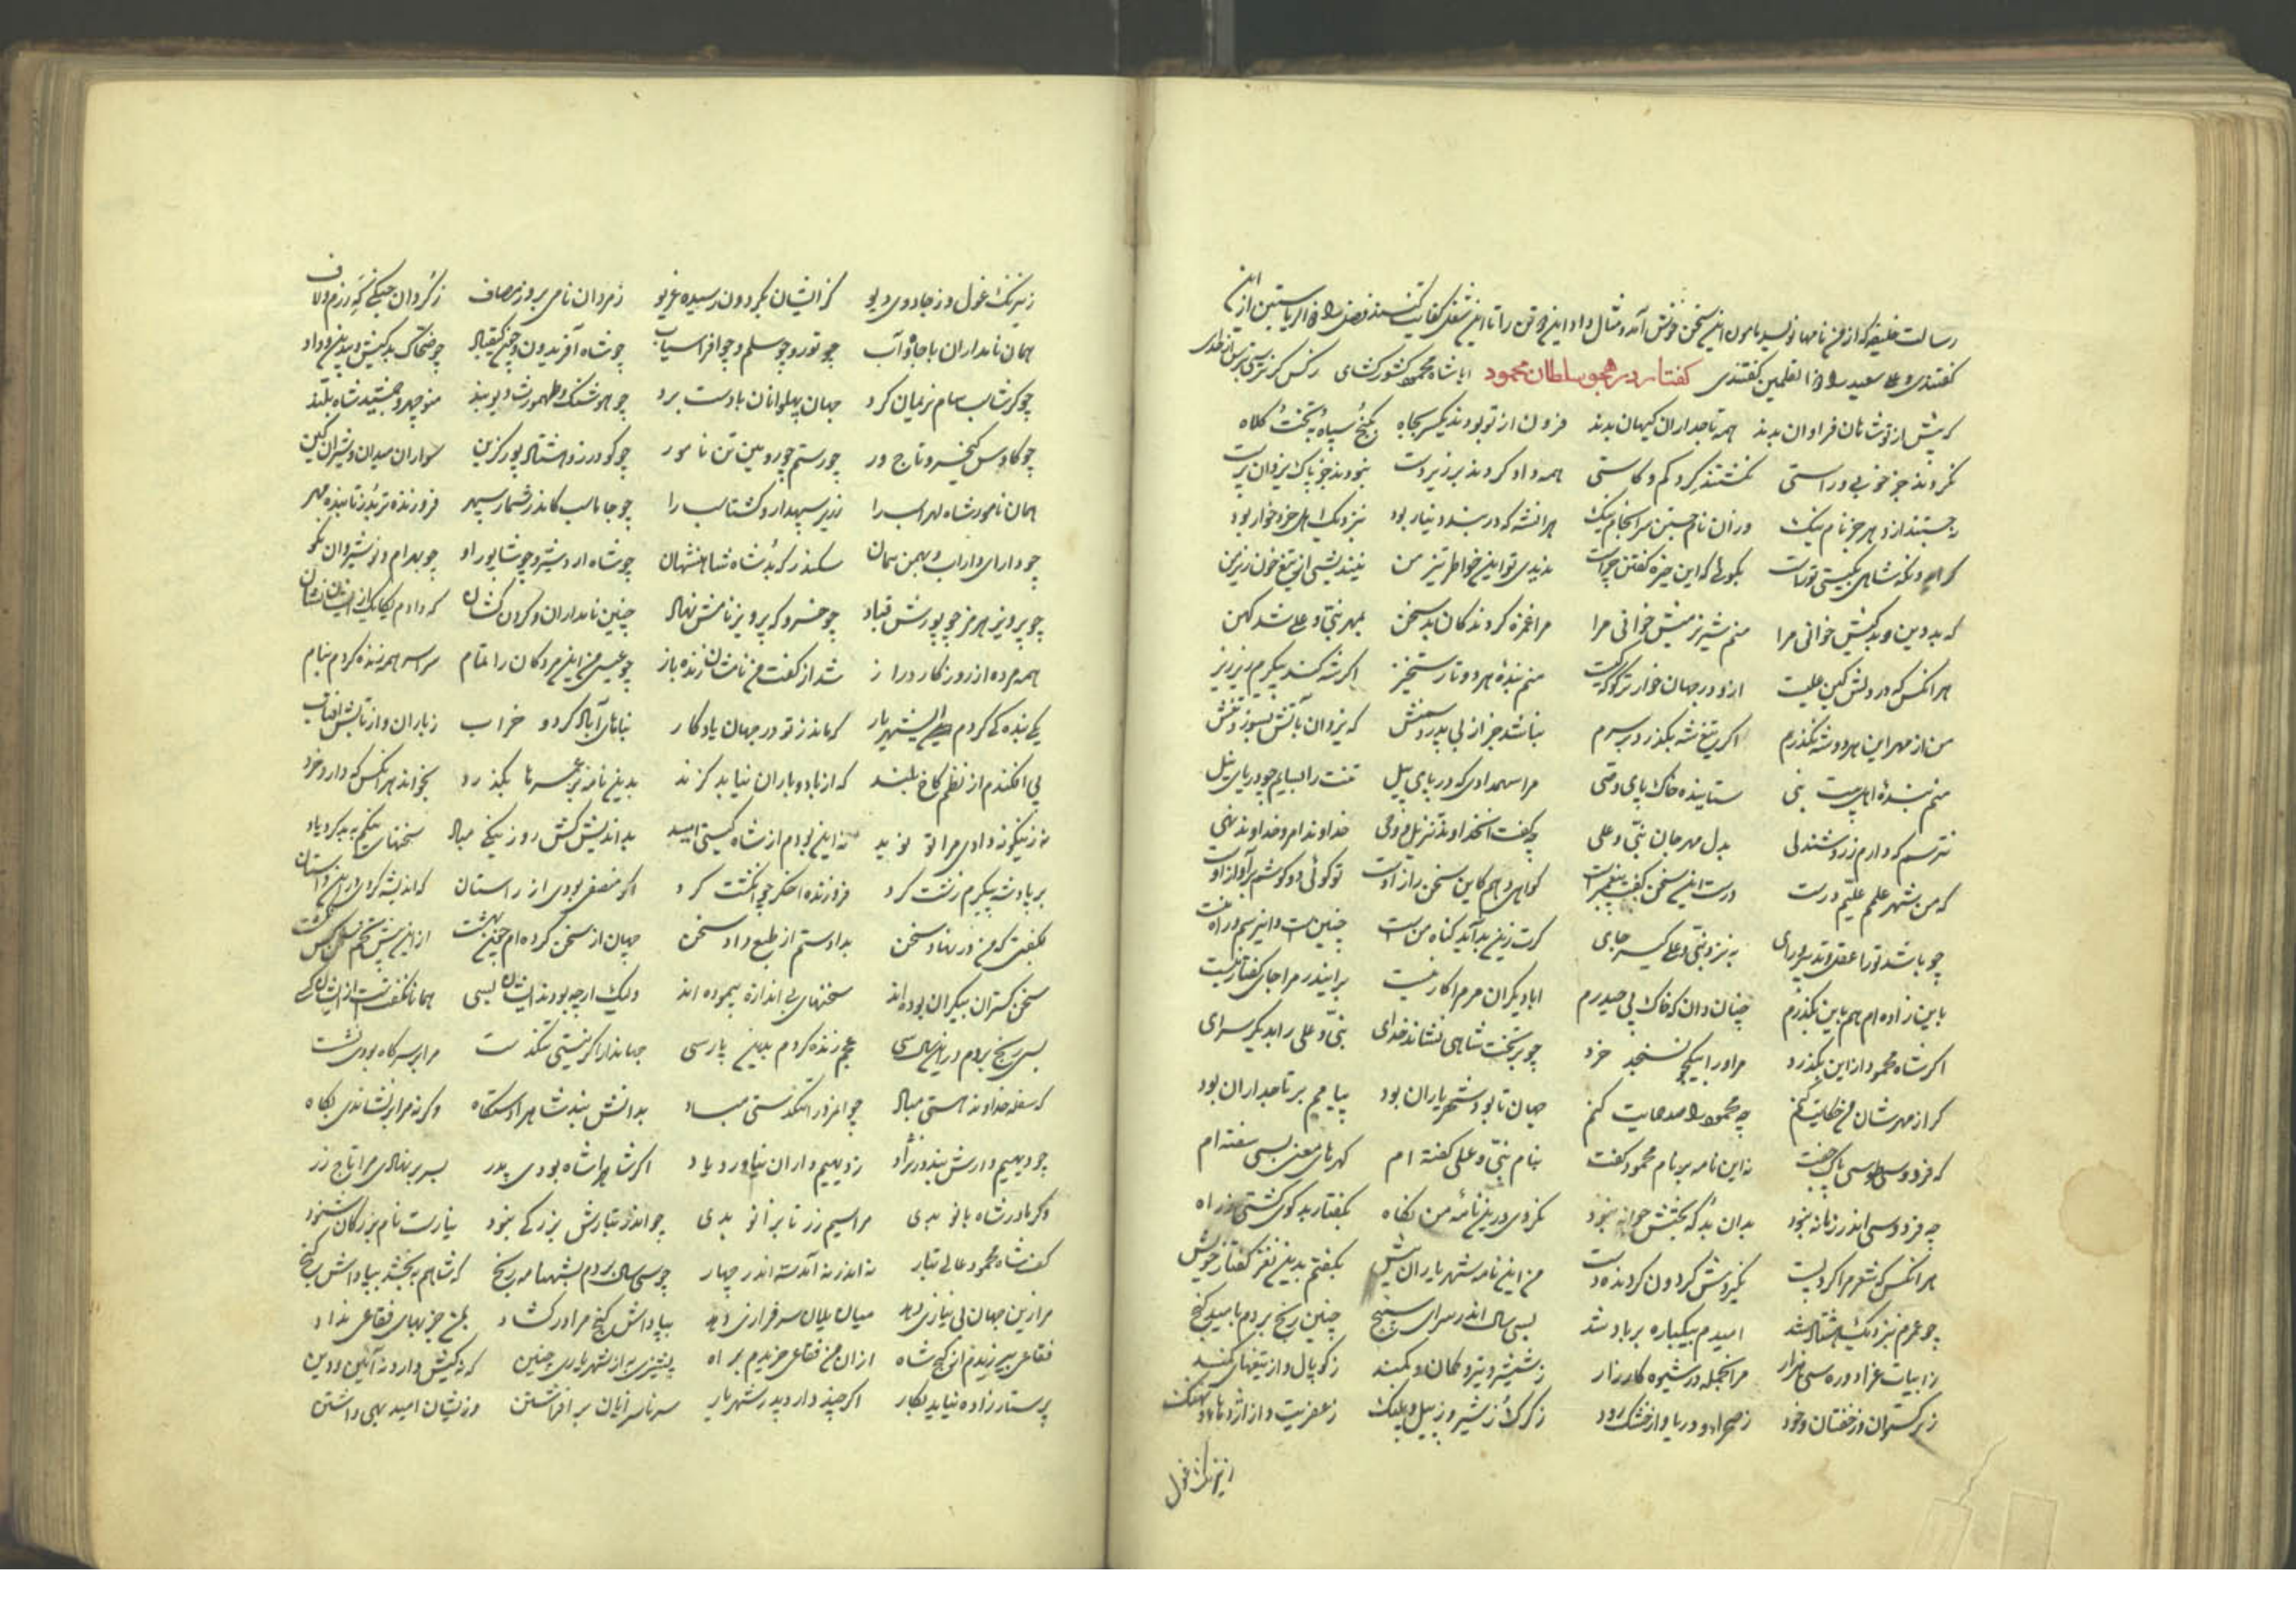 رسالت خلیفه که از من نامها نویسد مامون این سخن خوش آمد و مثال داد این دو تن را تا این شغل کفایت کنند و فضل را ذوالریاستین از این
گفتندی و علی سعید را ذوالقلمین گفتندی گفتار در هجو سلطان محمود ایا شاه محمود کشور گشای ز کس گر نترسی بترس از خدای
که پیش از تو شاهان فراوان بدند همه تاجداران کیهان بدند فزون از تو بودند یکسر بجاه بگنج و سپاه و بتخت و کلاه
نکردند جز خوبی و راستی نگشتند گرد کم و کاستی همه داد کردند بر زیردست نبودند جز پاک یزدان پرست
نجستند از دهر جز نام نیک وزان نام جستن سرانجام نیک هر آنشه که در بند دینار بود بنزدیک اهل خرد خوار بود
که ایدونکه شاهی بگیتی تراست بگویی که این خیره گفتن چراست ندیدی تو این خاطر تیز من نیندیشی از تیغ خون ریز من
که بد دین و بد کیش خوانی مرا منم شیر نر میش خوانی مرا مرا غمز کردند کان بد سخن بمهر نبی و علی شد کهن
هر آنکس که در دلش کین علیست ازو در جهان خوارتر گو که کیست منم بنده هر دو تا رستخیز اگر شه کند پیکرم ریز ریز
من از مهر این هر دو شه نگذرم اگر تیغ شه بگذرد بر سرم نباشد جز از بی پدر دشمنش که یزدان بآتش بسوزد تنش
منم بنده اهل بیت نبی ستاینده خاک پای وصی مرا سهم دادی که در پای پیل تنت را بسایم چو دریای نیل
نترسم که دارم ز روشندلی بدل مهر جان نبی و علی چه گفت آن خداوند تنزیل و وحی خداوند امر و خداوند نهی
که من شهر علمم علیم در ست درست این سخن گفت پیغمبر ست گواهی دهم کاین سخن راز اوست تو گویی دو گوشم بر آواز اوست
چو باشد ترا عقل و تدبیر و رای به نزد نبی و علی گیر جای گرت زین بد آید گناه من است چنین است و این رسم و راه منست
باین زاده ام هم باین بگذرم چنان دان که خاک پی حیدرم ابا دیگران مر مرا کار نیست برین در مرا جای گفتار نیست
اگر شاه محمود از این بگذرد مر او را بیکجو نسنجد خرد چو بر تخت شاهی نشاند خدای نبی و علی را بدیگر سرای
گر از مهرشان من حکایت کنم چو محمود را صد حمایت کنم جهان تا بود شهریاران بود پیامم بر تاجداران بود
که فردوسی طوسی پاک جفت نه این نامه بر نام محمود گفت بنام نبی و علی گفته ام گهرهای معنی بسی سفته ام
چو فردوسی اندر زمانه نبود بدان بد که بختش جوانه نبود نکردی درین نامه من نگاه بگفتار بدگوی گشتی ز راه
هر آنکس که شعر مرا کرد پست نگیردش گردون گردنده دست من این نامه شهریاران پیش بگفتم بدین نغز گفتار خویش
چو عمرم بنزدیک هشتاد شد امیدم بیکباره بر باد شد بسی سال اندر سرای سپنج چنین رنج بردم بامید گنج
ز ابیات غرا دو ره سی هزار مر آنجمله در شیوه کارزار ز شمشیر و تیر و کمان و کمند ز کوپال و از تیغهای بلند
ز برگستوان و ز خفتان و خود ز صحرا و دریا و از خشک رود ز گرگ و ز شیر و ز پیل و پلنگ ز عفریت و از اژدها و نهنگ
ز نیرنگ غول
ز نیرنگ غول و ز جادوی دیو کز ایشان بگردون رسیده غریو ز مردان نامی بروز مصاف ز گردان جنگی گه رزم و لاف
همان نامداران با جاه و آب چو تور و چو سلم و چو افراسیاب چو شاه آفریدون و چون کیقباد چو ضحاک بدکیش و بیدین و داد
چو گرشاسب سام نریمان گرد جهان پهلوانان با دست برد چو هوشنگ و طهمورث دیوبند منوچهر و جمشید شاه بلند
چو کاوس کیخسرو تاجور چو رستم چو رویین تن نامور چو گودرز و هشتاد پور گزین سواران میدان و شیران کین
همان نامور شاه لهراسب را زریر سپهدار و گشتاسب را چو جاماسب کاندر شمار سپهر فروزنده تر بد ز تابنده مهر
چو دارای داراب و بهمن همان سکندر که بد شاه شاهنشهان چو شاه اردشیر و چو شاپور او چو بهرام و نوشیروان نکو
چو پرویز هرمز چو پورش قباد چو خسرو که پرویز نامش نهاد چنین نامداران و گردن کشان که دادم یکایک از ایشان نشان
همه مرده از روزگار دراز شد از گفت من نامشان زنده باز چو عیسی من این مردگان را تمام سراسر همه زنده کردم بنام
یکی بنده گی کردم ای شهریار که ماند ز تو در جهان یادگار بناهای آباد گردد خراب ز باران و از تابش آفتاب
پی افکندم از نظم کاخ بلند که از باد و باران نیابد گزند بدین نامه بر عمرها بگذرد بخواند هر آنکس که دارد خرد
نه زینگونه دادی مرا تو نوید نه این بودم از شاه گیتی امید بد اندیش کش روز نیکی مباد سخنهای نیکم به بد کرد یاد
بر پادشه پیکرم زشت کرد فروزنده اخگر چو انگشت کرد اگر منصفی بودی از راستان که اندیشه کردی در این داستان
بگفتی که من در نهاد سخن بدادستم از طبع داد سخن جهان از سخن کرده ام چون بهشت از این پیش تخم سخن کس نکشت
سخن گستران بیکران بوده اند سخنهای بی اندازه پیموده اند ولیک ارچه بودند ایشان بسی همانا نگفتست از ایشان کسی
بسی رنج بردم درین سال سی عجم زنده کردم بدین پارسی جهاندار اگر نیستی تنگدست مرا بر سر گاه بودی نشست
که سفله خداوند هستی مباد جوانمرد را تنگدستی مباد بدانش نبد شاه را دستگاه وگرنه مرا بر نشاندی بگاه
چو دیهیم دارش نبد در نژاد ز دیهیم داران نیاورد یاد اگر شاه را شاه بودی پدر بسر بر نهادی مرا تاج زر
وگر مادر شاه بانو بدی مرا سیم و زر تا بزانو بدی چو اندر تبارش بزرگی نبود نیارست نام بزرگان شنود
کف شاه محمود عالی تبار نه اندر نه آمد سه اندر چهار چو سی سال بردم بشهنامه رنج که شاهم ببخشد بپاداش گنج
مرا زین جهان بی نیازی دهد میان یلان سرفرازی دهد بپاداش گنج مرا در گشاد بمن جز بهای فقاعی نداد
فقاعی بیرزیدم از گنج شاه از آن من فقاعی خریدم براه پشیزی به از شهریاری چنین که نه کیش دارد نه آئین و دین
پرستار زاده نیاید بکار اگر چند دارد پدر شهریار سر ناسزایان بر افراشتن وزیشان امید بهی داشتن